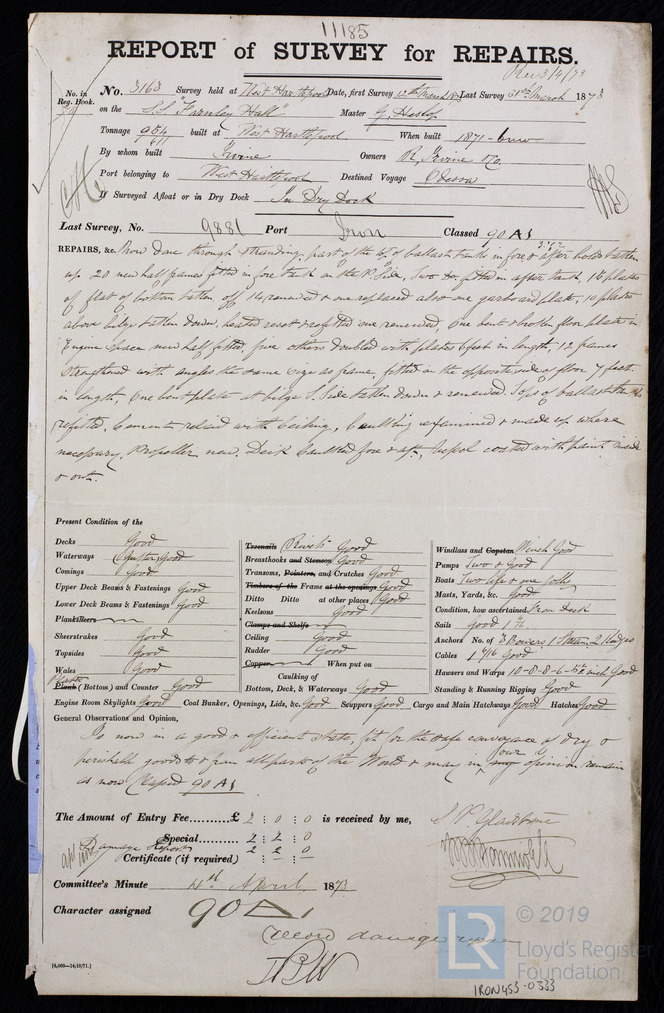 11185
REPORT of SURVEY for REPAIRS.
Rec 3/4/73
No. in Reg. Book.
No. 3163 Survey held at West Hartlepool Date, first Survey 12th March 1873 Last Survey 31st March 1873
on the S.S. "Farnley Hall" Master G. Heslop
Tonnage 954 / 611 built at West Hartlepool When built 1871
By whom built Irvine Owners R. Irvine & Co.
Port belonging to West Hartlepool Destined Voyage Odessa
If Surveyed Afloat or in Dry Dock In Dry Dock
Last Survey, No. 9881 Port Iron Classed 90 A1
REPAIRS, &c. Now done through stranding, part of the of ballast tanks in fore & after holds taken
up 20 new half frames fitted in fore tank on the P. Side, Two do. fitted in after tank, 15 plates
of flat of bottom taken off 14 renewed & one replaced also one garboard plate, 10 plates
above bilge taken down, heated reset & refitted one renewed, One bent & broken floor plate in
Engine space new half fitted, five others doubled with plates 6 feet in length, 12 frames
strengthened with angles the same size as frame, fitted on the opposite side of floor 7 feet
in length, One bent plate at bilge S. Side taken down & renewed. Tops of ballast tanks
refitted, Cement relaid with Ceiling, Caulking examined & made up where
necessary, Propeller new. Deck Caulked fore & aft, Vessel coated with paint inside
& out.
Present Condition of the
Decks Good
Waterways Gutter, Good
Comings Good
Upper Deck Beams & Fastenings Good
Lower Deck Beams & Fastenings Good
Planksheers
Sheerstrakes Good
Topsides Good
Wales Good
Plates Plank (Bottom) and Counter Good
Treenails Rivets Good
Breasthooks and Stemson Good
Transoms, Pointers, and Crutches Good
Timbers of the Frame at the openings Good
Ditto Ditto at other places Good
Keelsons Good
Clamps and Shelfs
Ceiling Good
Rudder Good
Copper When put on
Caulking of
Bottom, Deck, & Waterways Good
Windlass and Capstan Winch Good
Pumps Two & Good
Boats Two life & one jolly
Masts, Yards, &c. Good
Condition, how ascertained From Deck
Sails Good
Anchors No. of 3 Bowers 1 Stream 2 Kedges
Cables 1 9/16 Good
Hawsers and Warps 10-8-8-6-5½ inch Good
Standing & Running Rigging Good
Engine Room Skylights Good Coal Bunker, Openings, Lids, &c. Good Scuppers Good Cargo and Main Hatchways Good Hatches Good
General Observations and Opinion,
Is now in a good & efficient state, fit for the safe conveyance of Dry &
perishable goods to & from all parts of the World & may in our my opinion remain
as now Classed 90 A1
The Amount of Entry Fee..........£ 2 : 0 : 0 is received by me, Gladstone
Special.......... 2 : 2 : 0
Damage Report 2 2 0
Certificate (if required) — : — : —
Committee's Minute 4th April 1873
Character assigned 90 A1
[6,000—14/10/71.]
LR © 2019
Lloyd's Register
Foundation
IRON453-0333